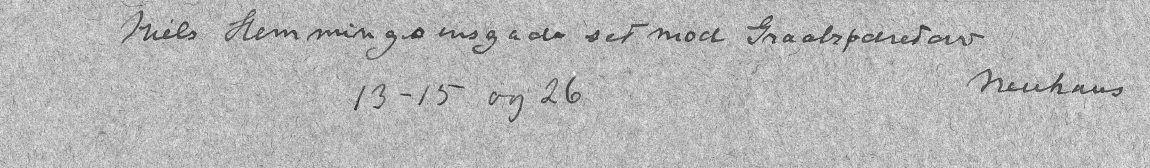 Niels Hemmingsensgade set mod Graabrødretorv
13-15 og 26
Neuhaus